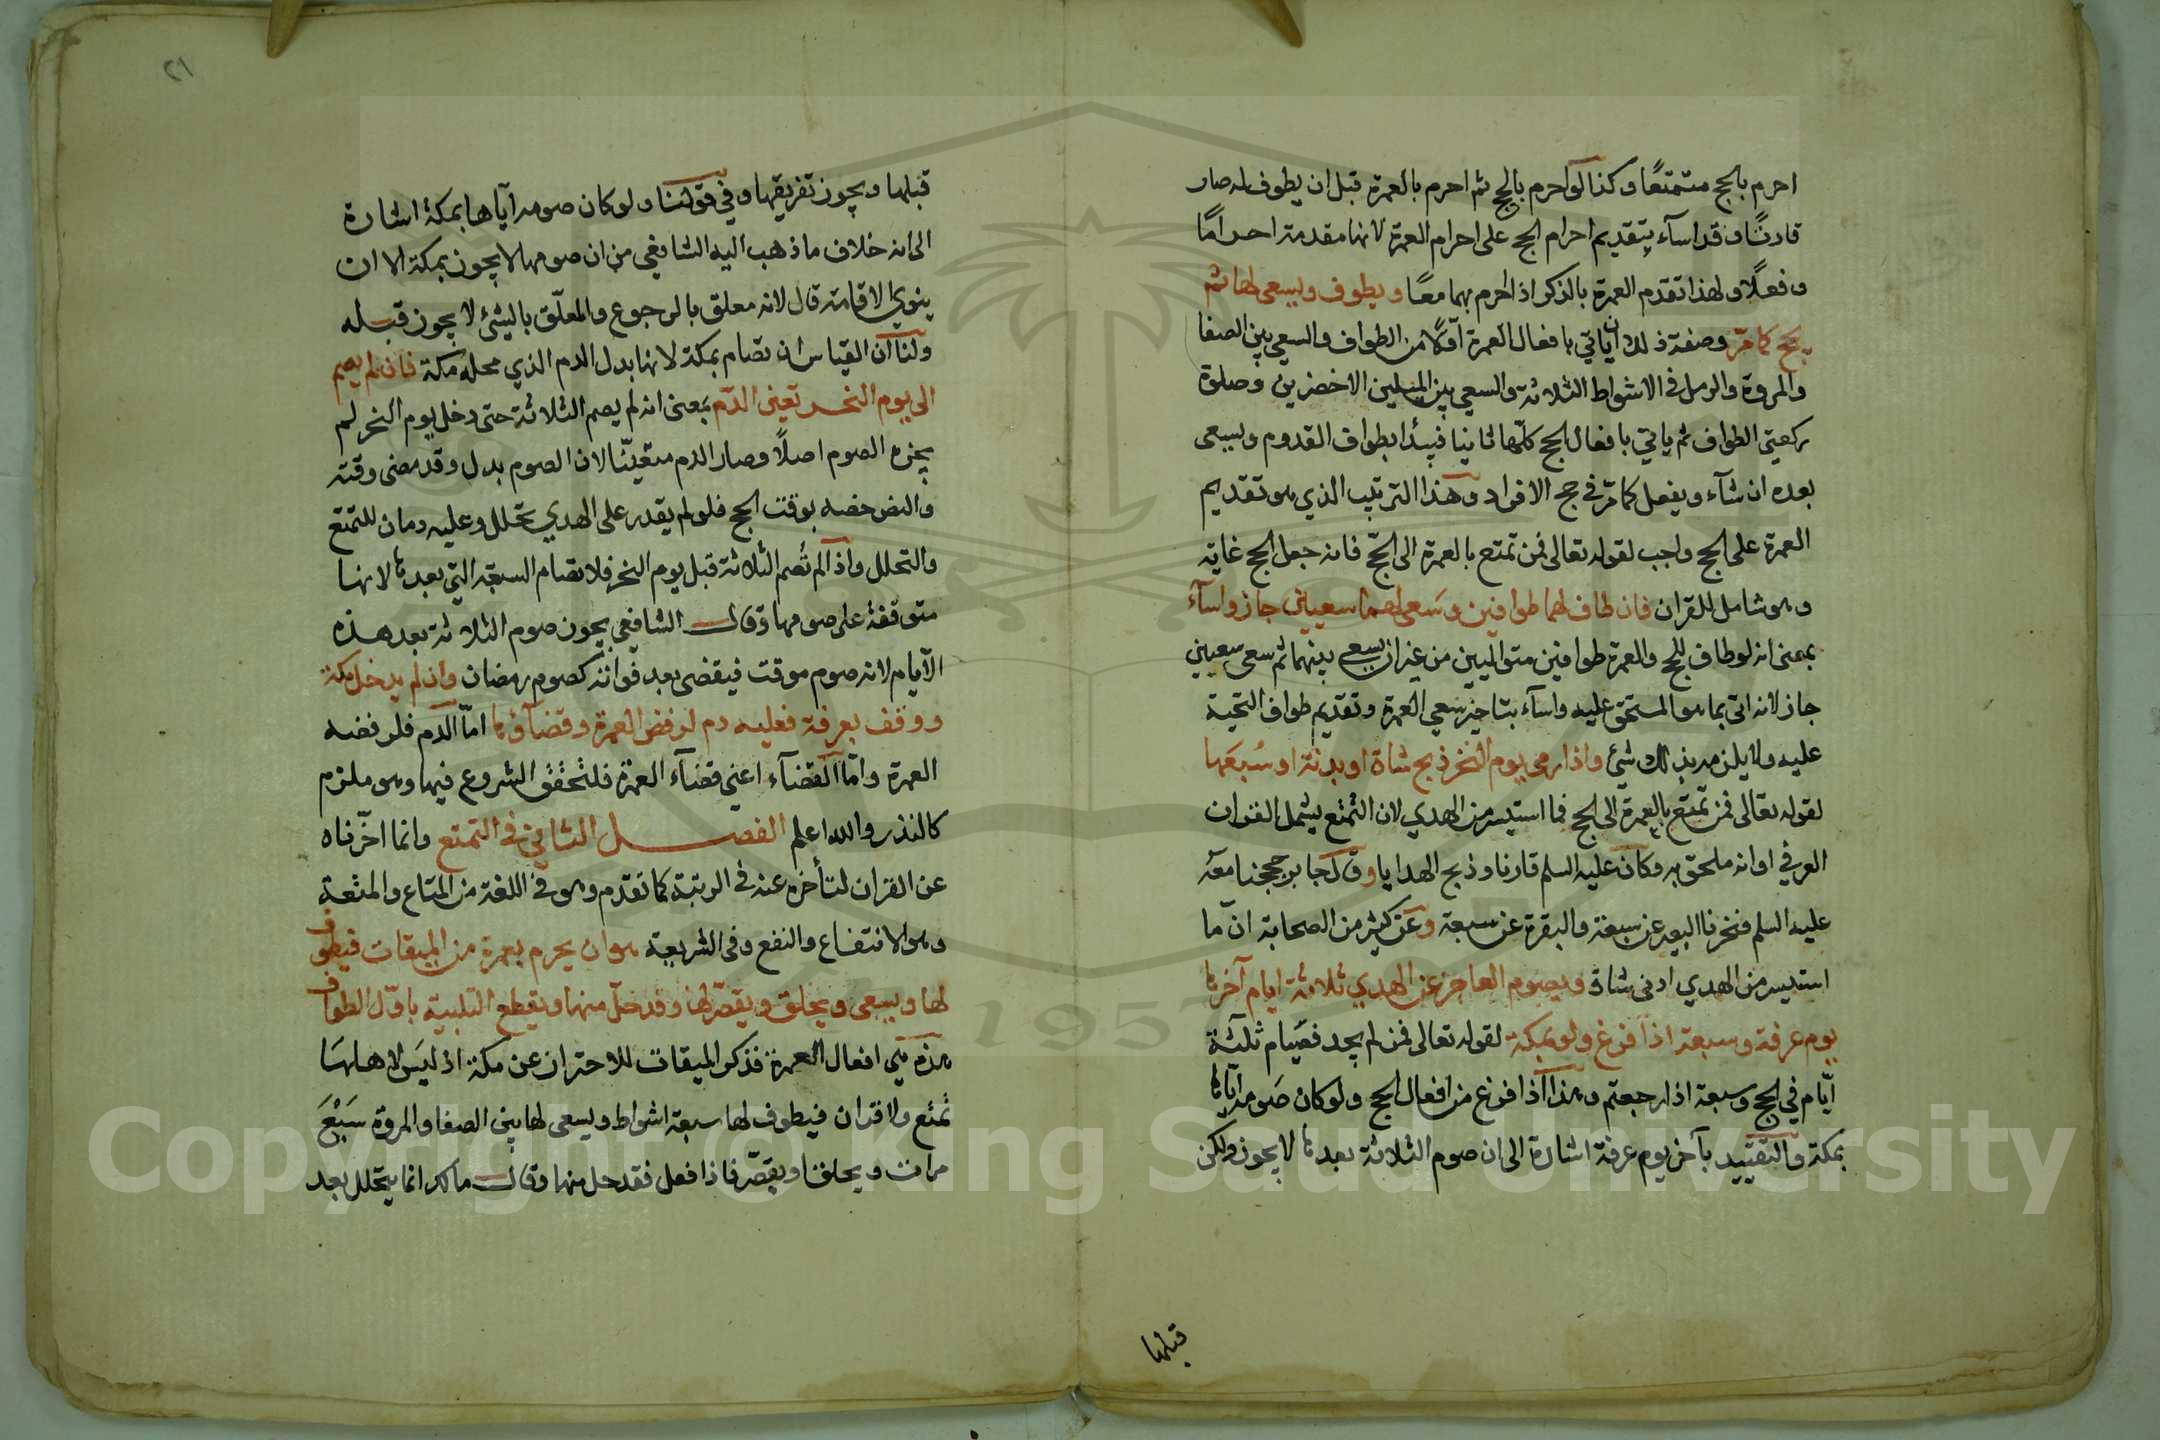 احرم بالحج متمتعًا وكذا لو احرم بالحج ثم احرم بالعمرة قبل ان يطوف له صار
قارنًا وقد اسآء بتقديم احرام الحج على احرام العمرة لانها مقدمة احرامًا
وفعلًا ولهذا تقدم العمرة بالذكر اذا احرم بهما معًا ويطوف ويسعى لها ثم
يحج كما مرّ وصفة ذلك ان ياتي بافعال العمرة اوّلا من الطواف والسعي بين الصفا
والمروة والرمل في الاشواط الثلاثة والسعي بين الميلين الاخضرين وصلوة
ركعتي الطواف ثم ياتي بافعال الحج كلّها ثانيا فيبدأ بطواف القدوم ويسعى
بعده ان شآء ويفعل كما مرّ في حج الافراد وهذا الترتيب الذي هو تقديم
العمرة على الحج واجب لقوله تعالى فمن تمتع بالعمرة الى الحجّ فانه جعل الحج غايته
وهو شامل للقران فان طاف لهما طوافين وسَعى لهما سعيين جاز واسآء
بمعنى انه لو طاف للحج والعمرة طوافين متواليين من غير ان يسعى بينهما ثم سعى سعيين
جاز لانه اتى بما هو المستحق عليه واسآء بتاخير سعي العمرة وتقديم طواف التحية
عليه ولا يلزمه بذلك شئ واذا رمى يوم النحر ذبح شاة او بدنة او سُبعَها
لقوله تعالى فمن تمتع بالعمرة الى الحج فما استيسر من الهدي لان التمتع يشمل القران
العرفي او انه ملحق به وكان عليه السلم قارنا وذبح الهدايا وقال جابر حججنا معه
عليه السلم فنحرنا البعير عن سبعة والبقرة عن سبعة وعن كثير من الصحابة انّ ما
استيسر من الهدي ادنى شاة ويصوم العاجز عن الهدي ثلاثة ايام آخرها
يوم عرفة وسبعة اذا فرغ ولو بمكة لقوله تعالى فمن لم يجد فصيام ثلثة
ايّام في الحج وسبعة اذا رجعتم وهذا اذا فرغ من افعال الحج ولو كان صَومه ايّاها
بمكة والتقييد بآخر يوم عرفة اشارة الى ان صوم الثلاثة بعدها لا يجوز ولكن
قبلها
٢١
قبلها ويجوز تفريقها وفي قولنا ولو كان صومه ايّاها بمكة اشارة
الى انه خلاف ما ذهب اليه الشافعي من ان صومها لا يجوز بمكة الا ان
ينوي الاقامة قال لانه معلق بالرجوع والمعلّق بالشئ لا يجوز قبله
ولنا ان القياس ان تصام بمكة لانها بدل الدم الذي محله مكة فان لم يصم
الى يوم النحر تعين الدّم بمعنى انه لم يصم الثلاثة حتى دخل يوم النحر لم
يجزه الصوم اصلًا وصار الدم متعيّنًا لان الصوم بدل وقد مضى وقته
والنص خصه بوقت الحج فلو لم يقدر على الهدي تحلل وعليه دمان للتمتع
والتحلل واذا لم تصم الثلاثة قبل يوم النحر فلا تصام السبعة التي بعدها لانها
متوقفة على صومها وقال الشافعي يجوز صوم الثلاثة بعد هذه
الأيام لانه صوم موقت فيقضى بعد فواته كصوم رمضان وان لم يدخل مكة
ووقف بعرفة فعليه دم لرفض العمرة وقضاؤها امّا الدم فلرفضه
العمرة وامّا القضآء اعني قضآء العمرة فلتحقق الشروع فيها وهو ملزم
كالنذر والله اعلم الفصل الثاني في التمتع وانما اخّرناه
عن القران لتأخره عنه في الرتبة كما تقدم وهو في اللغة من المتاع والمتعة
وهو الانتفاع والنفع وفي الشريعة هو ان يحرم بعمرة من الميقات فيطوف
لها ويسعى ويحلق او يقصّر لها وقد حلّ منها ويقطع التلبية باوّل الطواف
هذه هي افعال العمرة فذكر الميقات للاحتراز عن مكة اذ ليس لاهلها
تمتع ولا قران فيطوف لها سبعة اشواط ويسعى لها بين الصفا والمروة سَبْعَ
مرات ويحلق او يقصّر فاذا فعل فقد حل منها وقال مالك انما يتحلل بعد
Copyright © King Saud University
1957